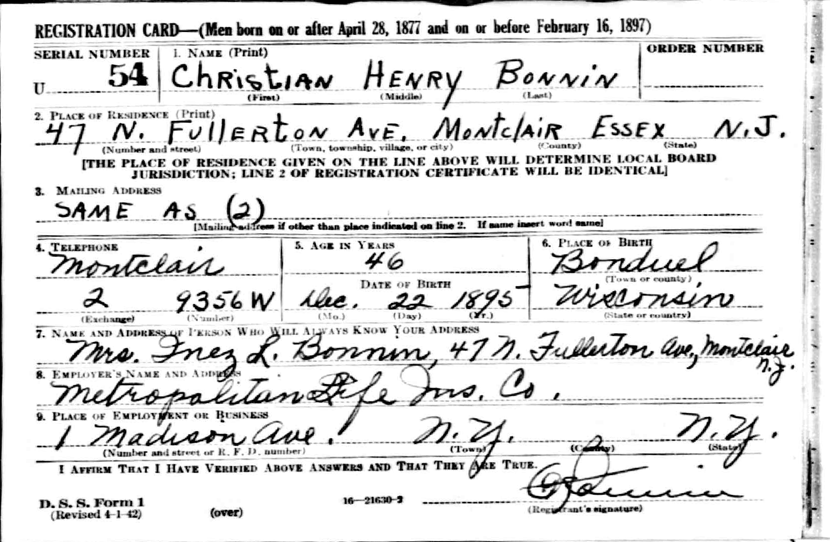 REGISTRATION CARD—(Men born on or after April 28, 1877 and on or before February 16, 1897)
SERIAL NUMBER 1. NAME (Print) ORDER NUMBER
U 54 CHRISTIAN HENRY BONNIN
(First) (Middle) (Last)
2. PLACE OF RESIDENCE (Print)
47 N. FULLERTON AVE. MONTCLAIR ESSEX N.J.
(Number and street) (Town, township, village, or city) (County) (State)
[THE PLACE OF RESIDENCE GIVEN ON THE LINE ABOVE WILL DETERMINE LOCAL BOARD
JURISDICTION; LINE 2 OF REGISTRATION CERTIFICATE WILL BE IDENTICAL]
3. MAILING ADDRESS
SAME AS (2)
[Mailing address if other than place indicated on line 2. If same insert word same]
4. TELEPHONE 5. AGE IN YEARS 6. PLACE OF BIRTH
Montclair 46 Bonduel
DATE OF BIRTH (Town or county)
2 9356W Dec. 22 1895 Wisconsin
(Exchange) (Number) (Mo.) (Day) (Yr.) (State or country)
7. NAME AND ADDRESS OF PERSON WHO WILL ALWAYS KNOW YOUR ADDRESS
Mrs. Inez L. Bonnin, 47 N. Fullerton Ave, Montclair
N.J.
8. EMPLOYER'S NAME AND ADDRESS
Metropolitan Life Ins. Co.
9. PLACE OF EMPLOYMENT OR BUSINESS
1 Madison Ave. N.Y. N.Y.
(Number and street or R. F. D. number) (Town) (County) (State)
I AFFIRM THAT I HAVE VERIFIED ABOVE ANSWERS AND THAT THEY ARE TRUE.
D. S. S. Form 1 16—21630-2
(Revised 4-1-42) (over) (Registrant's signature)